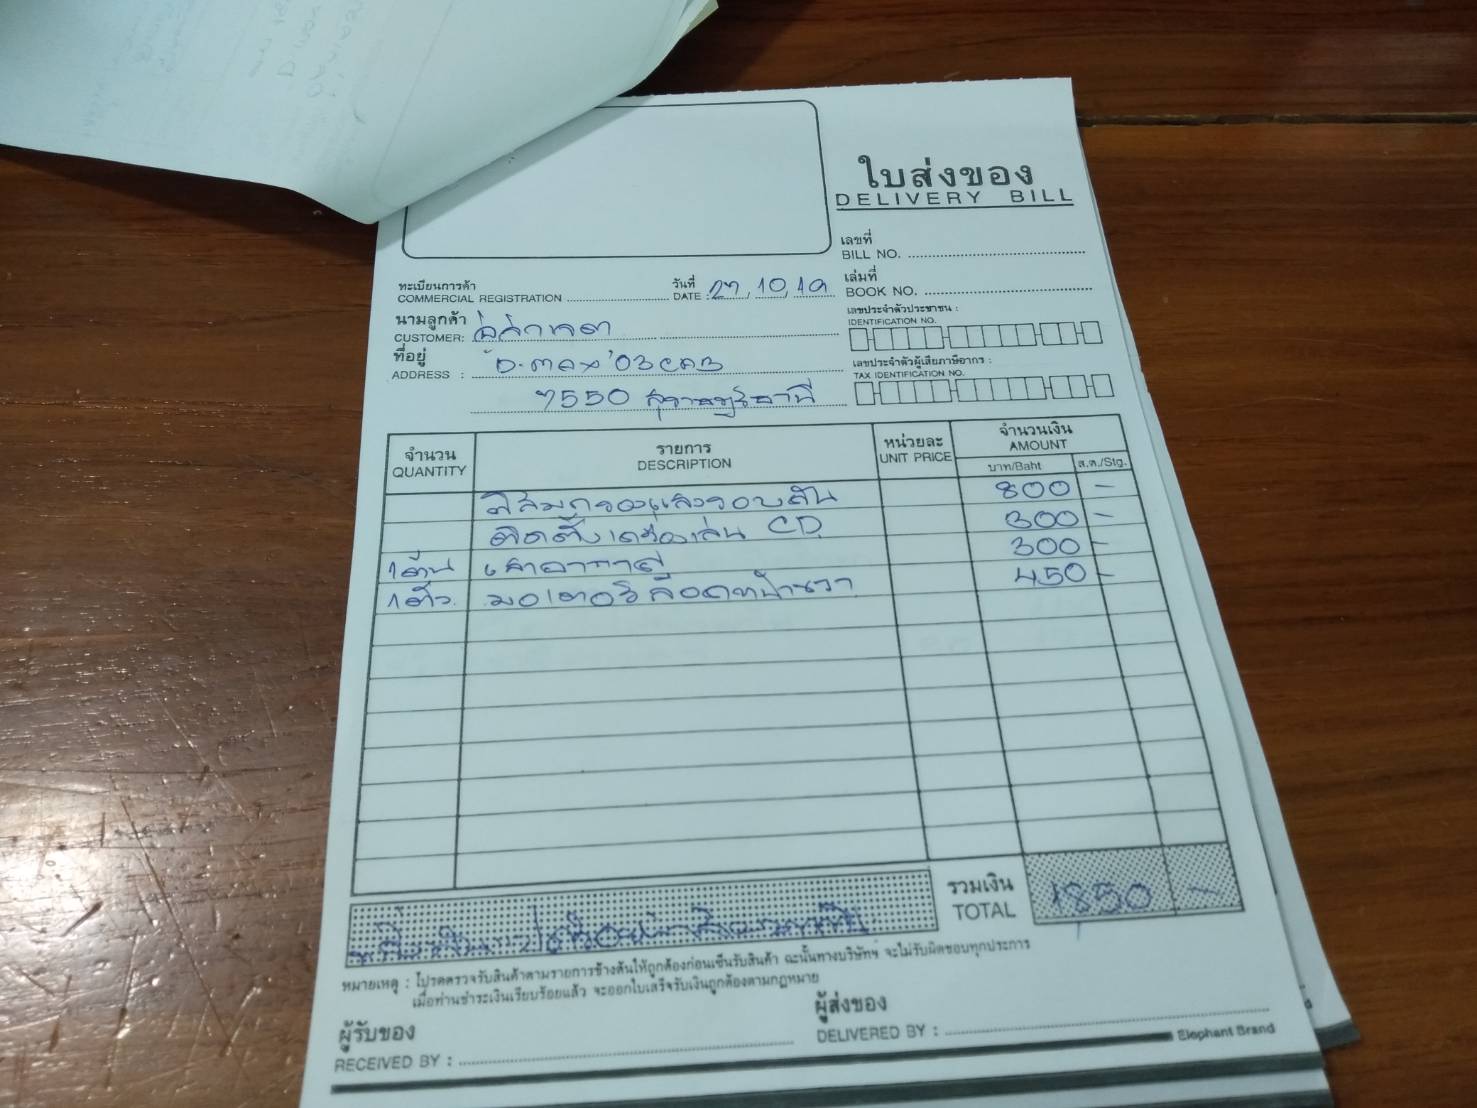 ใบส่งของ
DELIVERY BILL
เลขที่
BILL NO.
ทะเบียนการค้า
COMMERCIAL REGISTRATION
วันที่
DATE : 27, 10, 19
เล่มที่
BOOK NO.
นามลูกค้า
CUSTOMER:
เลขประจำตัวประชาชน :
IDENTIFICATION NO.
ที่อยู่
ADDRESS : D-max '03 CAB
7550 สุราษฎร์ธานี
เลขประจำตัวผู้เสียภาษีอากร :
TAX IDENTIFICATION NO.
จำนวน
QUANTITY
รายการ
DESCRIPTION
หน่วยละ
UNIT PRICE
จำนวนเงิน
AMOUNT
บาท/Baht ส.ต./Stg.
ฟิล์มกรองแสงรอบคัน 800 -
ติดตั้งเครื่องเล่น CD 300 -
1 ต้น เสาอากาศ 300 -
1 ตัว. มอเตอร์ล็อคหน้าขวา 450 -
รวมเงิน
TOTAL 1850 -
หมายเหตุ : โปรดตรวจรับสินค้าตามรายการข้างต้นให้ถูกต้องก่อนเซ็นรับสินค้า ฉะนั้นทางบริษัทฯ จะไม่รับผิดชอบทุกประการ
เมื่อท่านชำระเงินเรียบร้อยแล้ว จะออกใบเสร็จรับเงินถูกต้องตามกฎหมาย
ผู้รับของ
RECEIVED BY :
ผู้ส่งของ
DELIVERED BY :
Elephant Brand